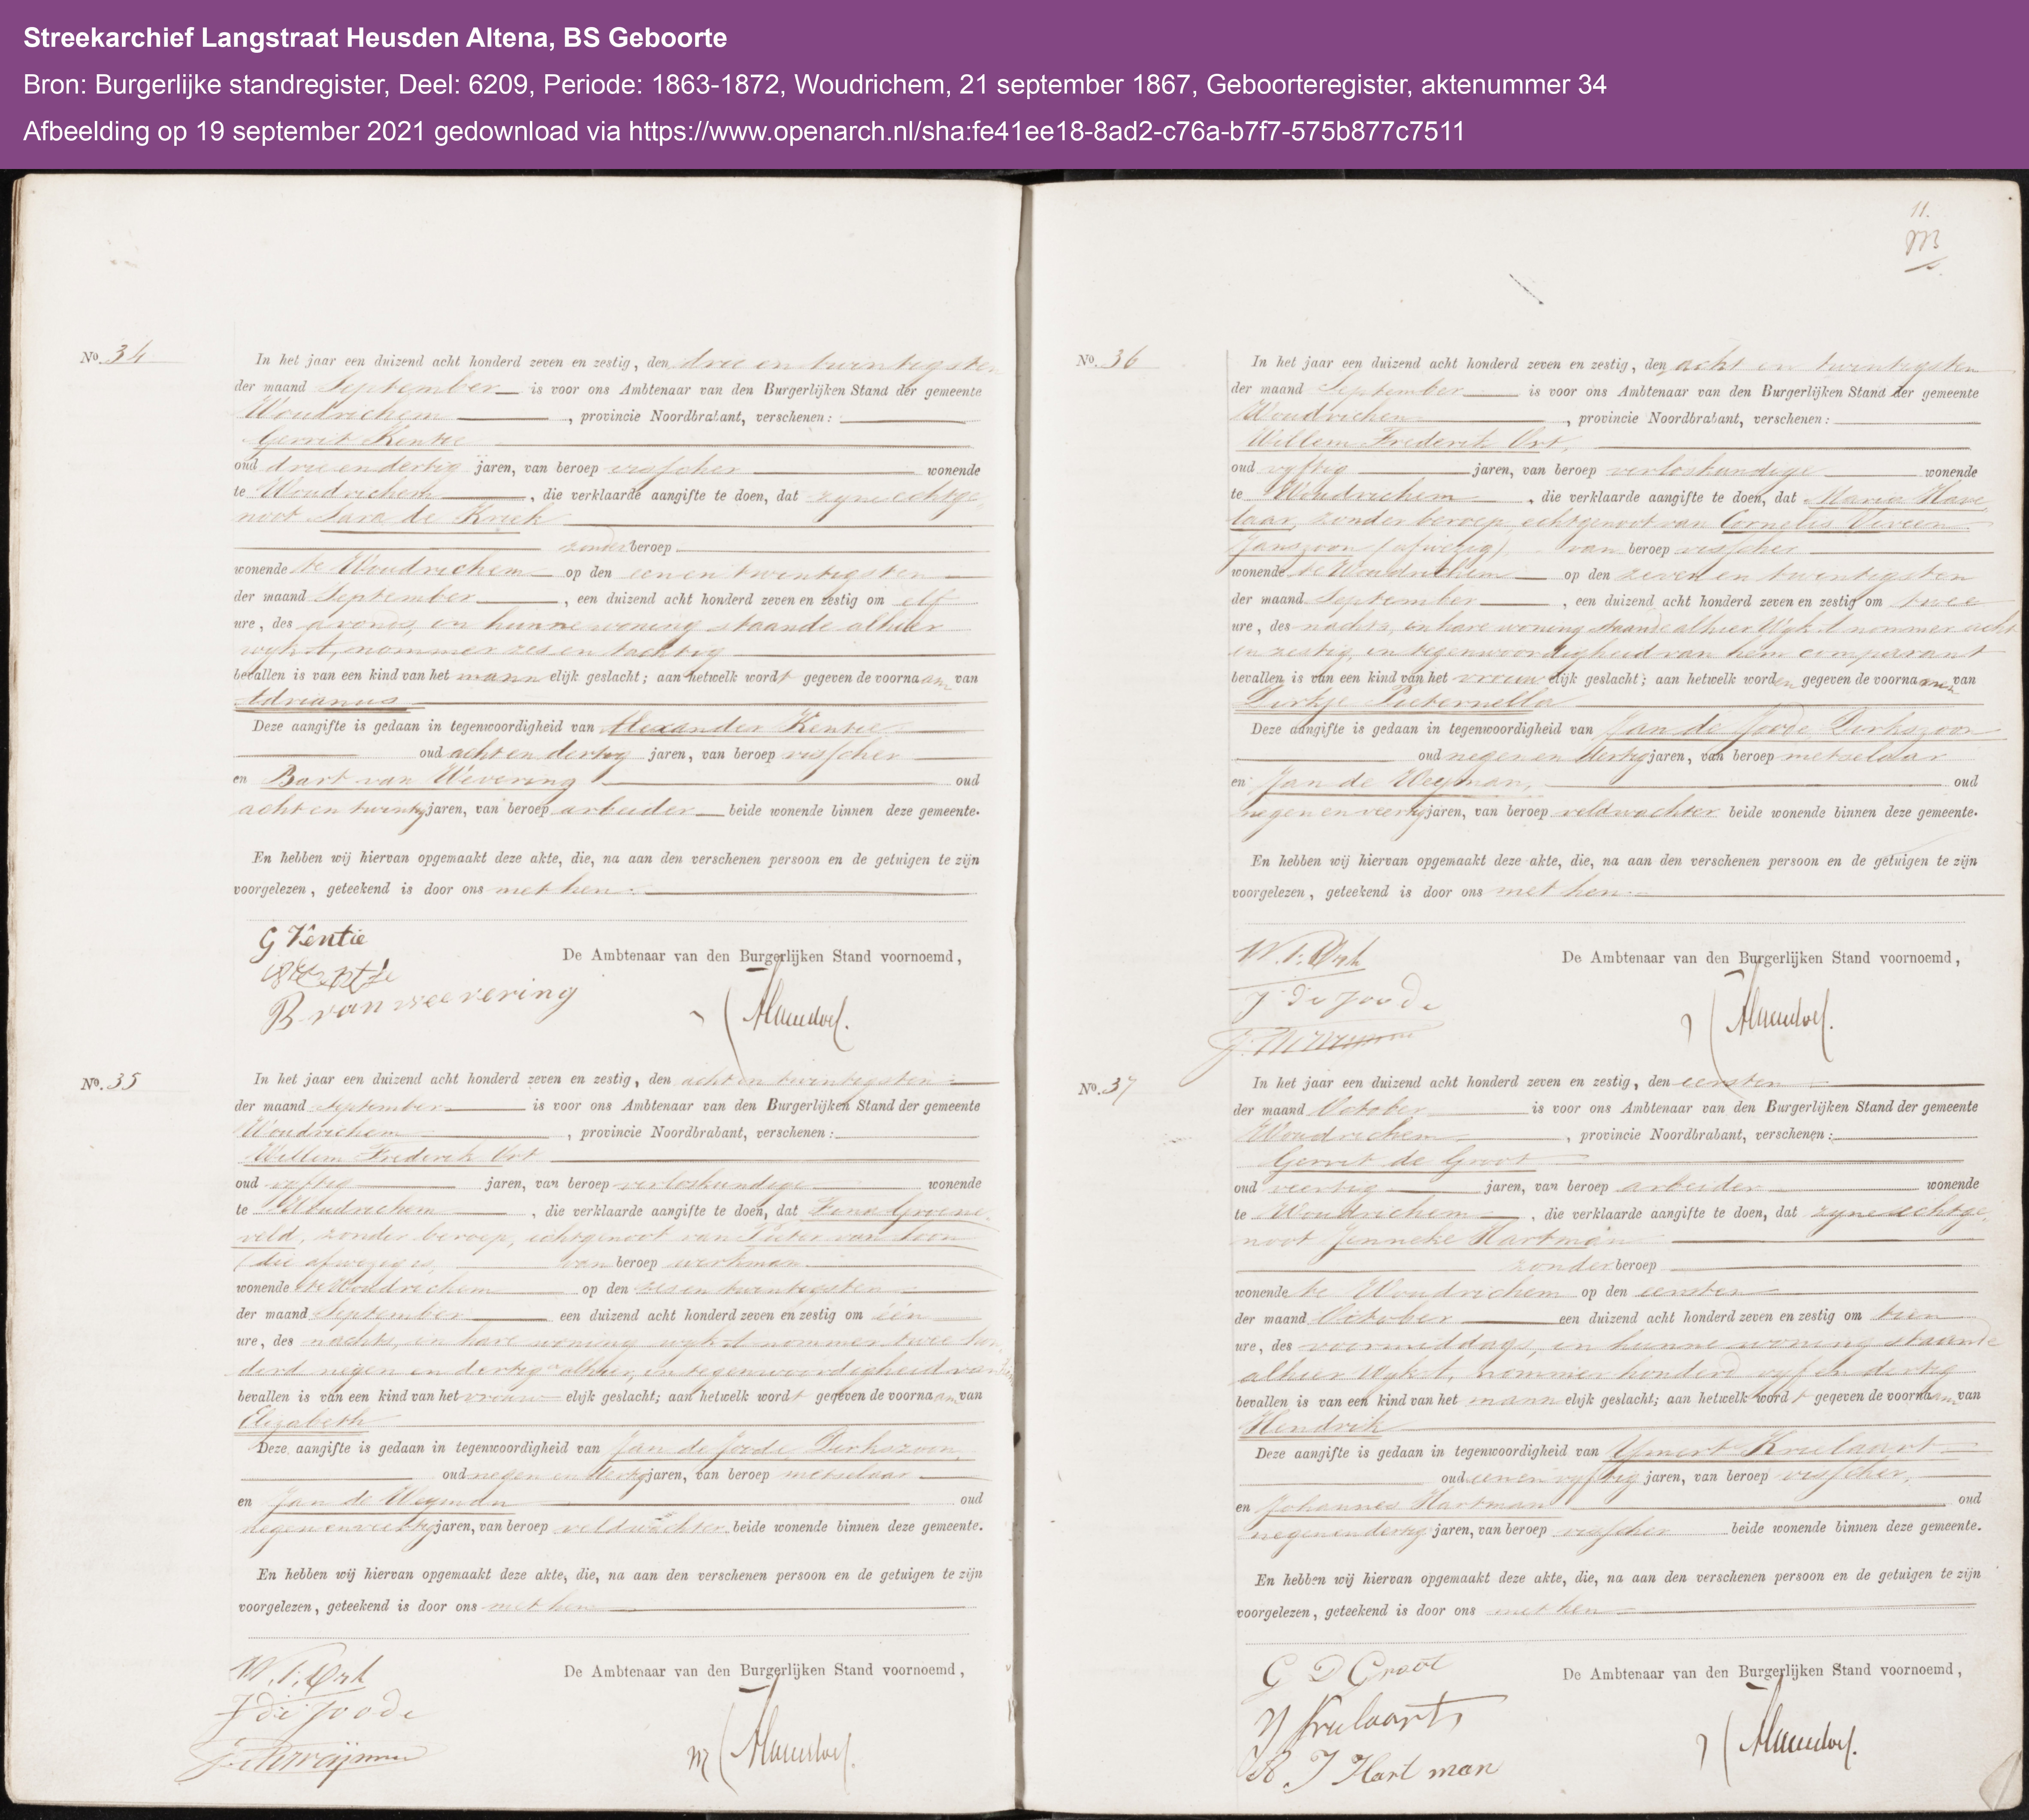 Streekarchief Langstraat Heusden Altena, BS Geboorte
Bron: Burgerlijke standregister, Deel: 6209, Periode: 1863-1872, Woudrichem, 21 september 1867, Geboorteregister, aktenummer 34
Afbeelding op 19 september 2021 gedownload via https://www.openarch.nl/sha:fe41ee18-8ad2-c76a-b7f7-575b877c7511
No. 34
In het jaar een duizend acht honderd zeven en zestig, den drie en twintigsten
der maand September is voor ons Ambtenaar van den Burgerlijken Stand der gemeente
Woudrichem, provincie Noordbrabant, verschenen:
Gerrit Kentie
oud drie en dertig jaren, van beroep visscher wonende
te Woudrichem, die verklaarde aangifte te doen, dat zyne echtge-
noot Sara de Kriek
zonder beroep
wonende te Woudrichem op den eenen twintigsten
der maand September, een duizend acht honderd zeven en zestig om elf
ure, des avonds, in hunne woning staande alhier
wyk A, nommer zes en tachtig
bevallen is van een kind van het mannelijk geslacht; aan hetwelk wordt gegeven de voornaam van
Adrianus
Deze aangifte is gedaan in tegenwoordigheid van Alexander Kentie
oud acht en dertig jaren, van beroep visscher
en Bart van Wevering oud
acht en twintig jaren, van beroep arbeider beide wonende binnen deze gemeente.
En hebben wij hiervan opgemaakt deze akte, die, na aan den verschenen persoon en de getuigen te zijn
voorgelezen, geteekend is door ons met hen.
G Kentie
De Ambtenaar van den Burgerlijken Stand voornoemd,
B van weevering
No. 35
In het jaar een duizend acht honderd zeven en zestig, den acht en twintigsten
der maand September is voor ons Ambtenaar van den Burgerlijken Stand der gemeente
Woudrichem, provincie Noordbrabant, verschenen:
Willem Frederik Ort
oud vyftig jaren, van beroep verloskundige wonende
te Woudrichem, die verklaarde aangifte te doen, dat Groene-
veld, zonder beroep, echtgenoot van Pieter van Toon
(die afwezig is, van beroep werkman
wonende te Woudrichem op den zes en twintigsten
der maand September een duizend acht honderd zeven en zestig om één
ure, des nachts, in hare woning wyk A nommer twee hon-
derd negen en dertig alhier, in tegenwoordigheid van
bevallen is van een kind van het vrouwelijk geslacht; aan hetwelk wordt gegeven de voornaam van
Elizabeth
Deze aangifte is gedaan in tegenwoordigheid van Jan de Joode Dirkszoon,
oud negen en dertig jaren, van beroep metselaar
en Jan de Weyman oud
negen en veertig jaren, van beroep veldwachter beide wonende binnen deze gemeente.
En hebben wij hiervan opgemaakt deze akte, die, na aan den verschenen persoon en de getuigen te zijn
voorgelezen, geteekend is door ons met hen
W. F. Ort
De Ambtenaar van den Burgerlijken Stand voornoemd,
J de Joode
11.
No. 36
In het jaar een duizend acht honderd zeven en zestig, den acht en twintigsten
der maand September is voor ons Ambtenaar van den Burgerlijken Stand der gemeente
Woudrichem, provincie Noordbrabant, verschenen:
Willem Frederik Ort,
oud vyftig jaren, van beroep verloskundige wonende
te Woudrichem, die verklaarde aangifte te doen, dat Maria Have-
laar, zonder beroep, echtgenoot van Cornelis Viveen
Janszoon (afwezig) van beroep visscher
wonende te Woudrichem op den zeven en twintigsten
der maand September, een duizend acht honderd zeven en zestig om twee
ure, des nachts, in hare woning staande alhier Wyk A nommer acht
en zestig, in tegenwoordigheid van hem comparant
bevallen is van een kind van het vrouwelijk geslacht; aan hetwelk worden gegeven de voornamen van
Dirkje Pieternella
Deze aangifte is gedaan in tegenwoordigheid van Jan de Joode Dirkszoon
oud negen en dertig jaren, van beroep metselaar
en Jan de Weyman, oud
negen en veertig jaren, van beroep veldwachter beide wonende binnen deze gemeente.
En hebben wij hiervan opgemaakt deze akte, die, na aan den verschenen persoon en de getuigen te zijn
voorgelezen, geteekend is door ons met hen.
W. F. Ort
De Ambtenaar van den Burgerlijken Stand voornoemd,
J de Joode
No. 37
In het jaar een duizend acht honderd zeven en zestig, den eersten
der maand October is voor ons Ambtenaar van den Burgerlijken Stand der gemeente
Woudrichem, provincie Noordbrabant, verschenen:
Gerrit de Groot
oud veertig jaren, van beroep arbeider wonende
te Woudrichem, die verklaarde aangifte te doen, dat zyne echtge-
noot Jenneke Hartman
zonder beroep
wonende te Woudrichem op den eersten
der maand October een duizend acht honderd zeven en zestig om tien
ure, des voormiddags, in hunne woning staande
alhier Wyk A, nommer honderd vyf en dertig
bevallen is van een kind van het mannelijk geslacht; aan hetwelk wordt gegeven de voornaam van
Hendrik
Deze aangifte is gedaan in tegenwoordigheid van Krielaart
oud eenen vyftig jaren, van beroep visscher,
en Johannes Hartman oud
negenendertig jaren, van beroep visscher beide wonende binnen deze gemeente.
En hebben wij hiervan opgemaakt deze akte, die, na aan den verschenen persoon en de getuigen te zijn
voorgelezen, geteekend is door ons met hen
G D Groot
De Ambtenaar van den Burgerlijken Stand voornoemd,
Krulaart
J Hartman